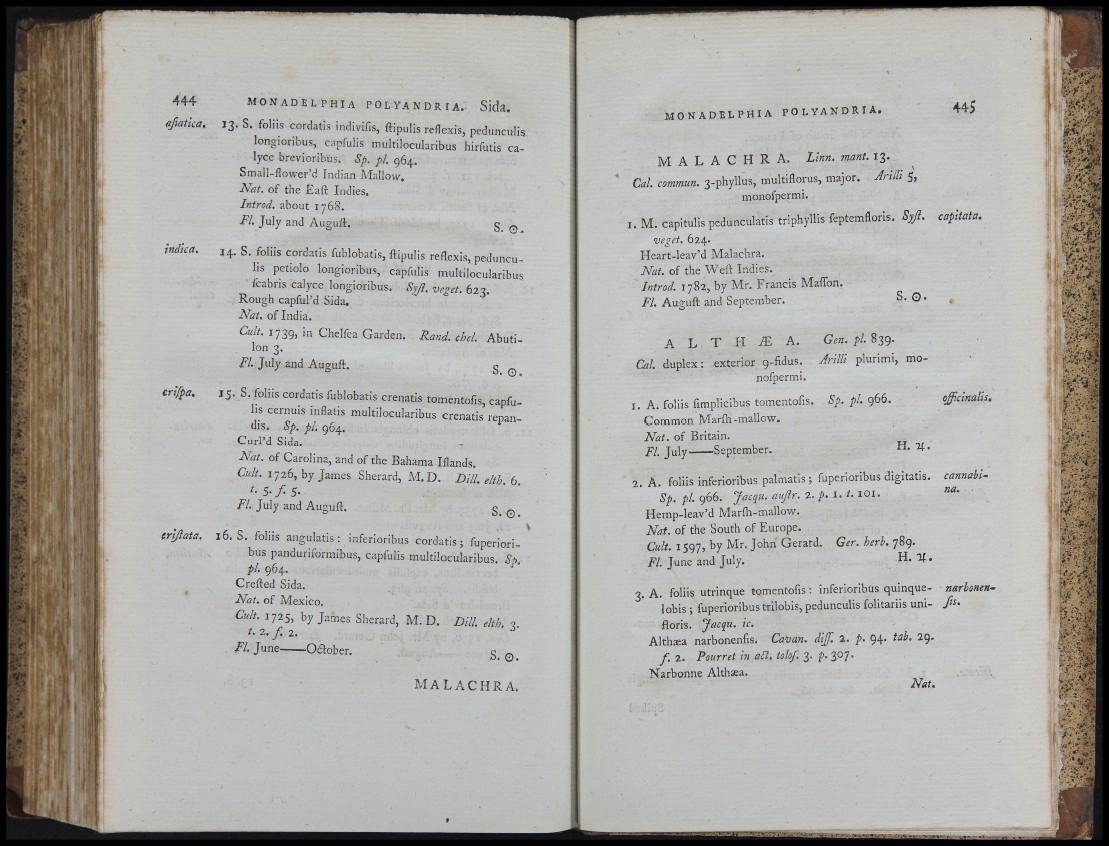 444 MONADELPHIA POLYANDRIA. Sida.
aſiatica. 13. S. foliis cordatis indiviſis, ſtipulis reflexis, pedunculis
longioribus, capſulis multilocularibus hirſutis ca-
lyce brevioribus. Sp. pl. 964.
Small-flower'd Indian Mallow.
Nat. of the Eaſt Indies.
Introd. about 1768.
Fl. July and Auguſt. S. ☉.
indica. 14. S. foliis cordatis ſublobatis, ſtipulis reflexis, peduncu-
lis petiolo longioribus, capſulis multilocularibus
ſcabris calyce longioribus. Syſt. veget. 623.
Rough capſul'd Sida.
Nat. of India.
Cult. 1739, in Chelſea Garden. Rand. chel. Abuti-
lon 3.
Fl. July and Auguſt. S. ☉.
criſpa. 15. S. foliis cordatis ſublobatis crenatis tomentoſis, capſu-
lis cernuis inflatis multilocularibus crenatis repan-
dis. Sp. pl. 964.
Curl'd Sida.
Nat. of Carolina, and of the Bahama Iſlands.
Cult. 1726, by James Sherard, M.D. Dill. elth. 6.
t. 5. f. 5.
Fl. July and Auguſt. S. ☉.
criſtata. 16. S. foliis angulatis: inferioribus cordatis; ſuperiori-
bus panduriformibus, capſulis multilocularibus. Sp.
pl. 964.
Creſted Sida.
Nat. of Mexico.
Cult. 1725, by James Sherard, M. D. Dill. elth. 3.
t. 2. f. 2.
Fl. June——October. S. ☉.
MALACHRA.
MONADELPHIA POLYANDRIA. 445
MALACHRA. Linn. mant. 13.
Cal. commun. 3-phyllus, multiflorus, major. Arilli 5,
monoſpermi.
1. M. capitulis pedunculatis triphyllis ſeptemfloris. Syſt. capitata.
veget. 624.
Heart-leav'd Malachra.
Nat. of the Weſt Indies.
Introd. 1782, by Mr. Francis Maſſon.
Fl. Auguſt and September. S. ☉.
ALTHÆA. Gen. pl. 839.
Cal. duplex: exterior 9-fidus. Arilli plurimi, mo-
noſpermi.
1. A. foliis ſimplicibus tomentoſis. Sp. pl. 966. officinalis.
Common Marſh-mallow.
Nat. of Britain.
Fl. July——September. H. ♃.
2. A. foliis inferioribus palmatis; ſuperioribus digitatis. cannabi-
Sp. pl. 966. Jacqu. auſtr. 2. p. 1. t. 101. na.
Hemp-leav'd Marſh-mallow.
Nat. of the South of Europe.
Cult. 1597, by Mr. John Gerard. Ger. herb. 789.
Fl. June and July. H. ♃.
3. A. foliis utrinque tomentoſis: inferioribus quinque- narbonen-
lobis; ſuperioribus trilobis, pedunculis ſolitariis uni- ſis.
floris. Jacqu. ic.
Althæa narbonenſis. Cavan. diſſ. 2. p. 94. tab. 29.
f. 2. Pourret in act. toloſ. 3. p. 307.
Narbonne Althæa.
Nat.